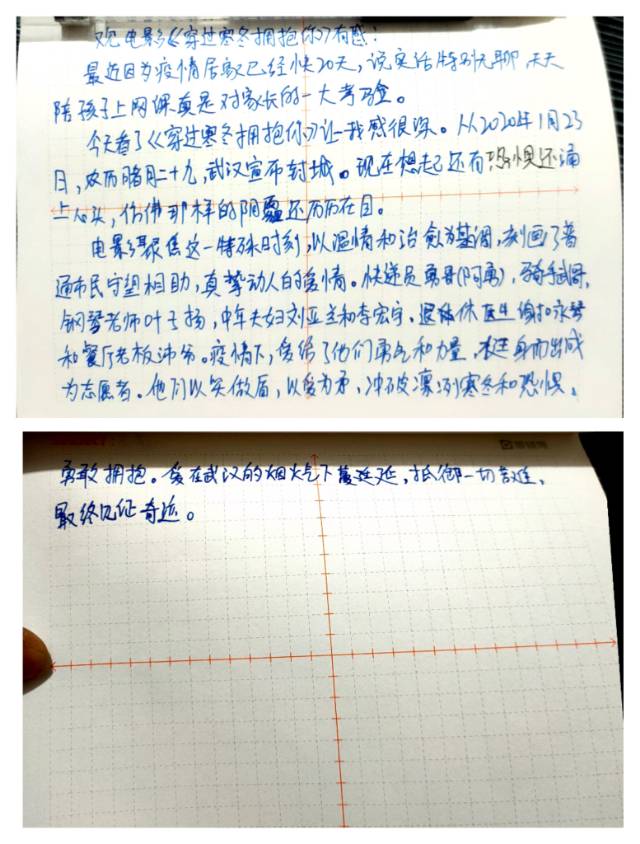 观电影《穿过寒冬拥抱你》有感!
最近因为疫情居家已经快20天,说实话特别无聊,天天
陪孩子上网课真是对家长的一大考验。
今天看了《穿过寒冬拥抱你》让我感很深。从2020年1月23
日,农历腊月二十九,武汉宣布封城。现在想起还有恐惧还涌
上心头,仿佛那样的阴霾还历历在目。
电影聚焦这一特殊时刻,以温情和治愈为基调,刻画了普
通市民守望相助,真挚动人的爱情。快递员勇哥(阿勇),骑手武哥,
钢琴老师叶子扬,中年夫妇刘亚兰和李宏宇,退休医生谢永琴
和餐厅老板沛爷。疫情下,爱给了他们勇气和力量,挺身而出成
为志愿者。他们以笑做盾,以爱为矛,冲破凛冽寒冬和恐惧,
勇敢拥抱。爱在武汉的烟火气下蔓延,抵御一切
最终见证奇迹。